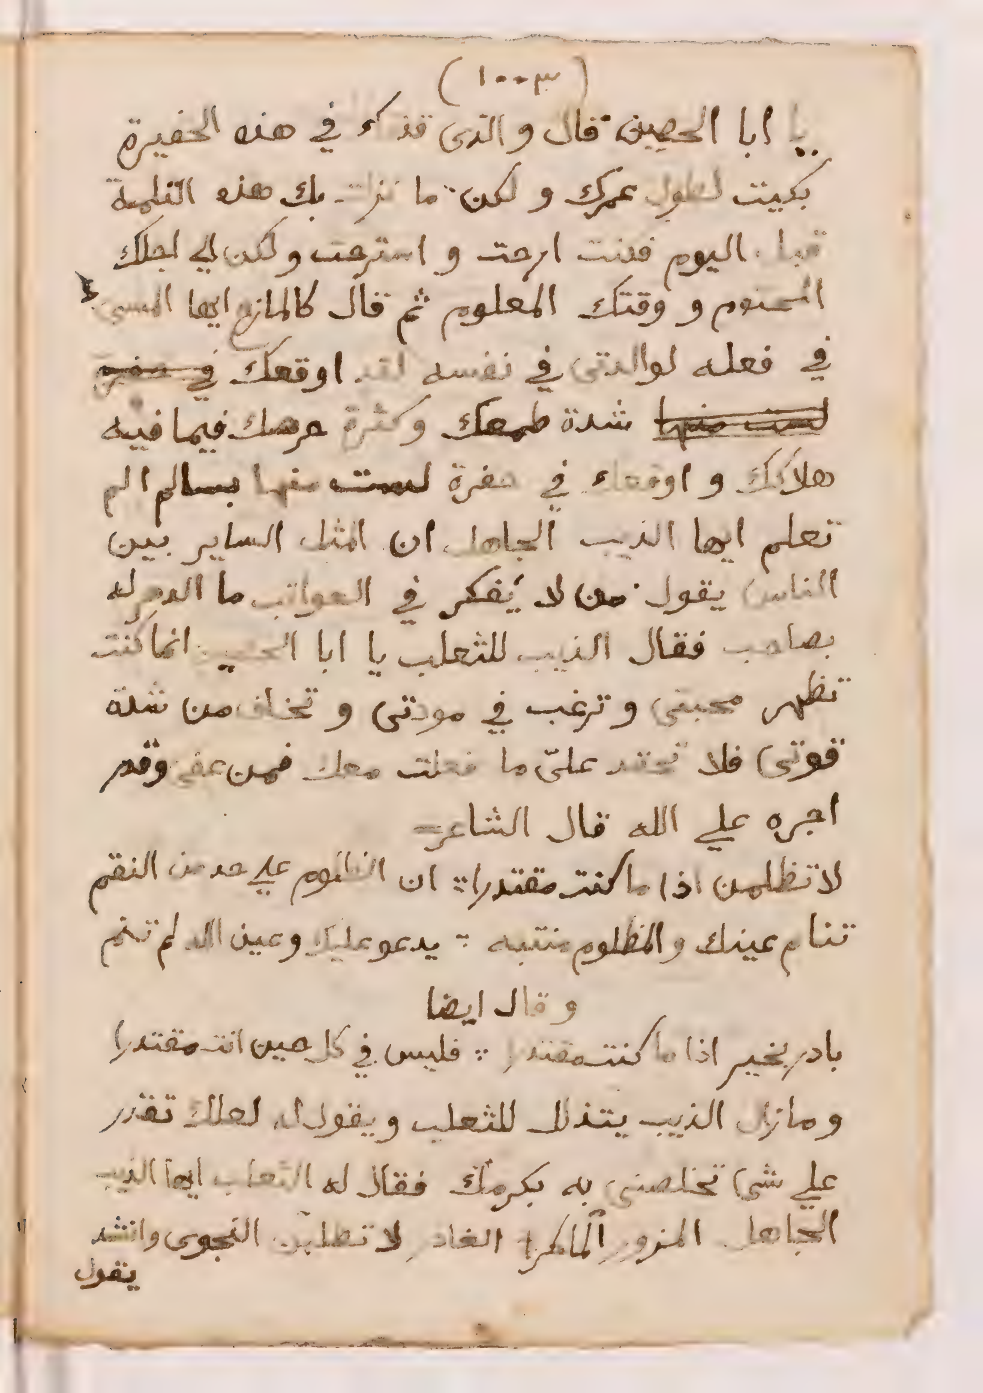 (١٠٠٣)
يا ابا الحصين قال والذى قدرك في هذه الحفيرة
بكيت لطول عمرك و لكن ما نزلت بك هذه
قبل اليوم فكنت ارحت و استرحت ولكن الي اجلك
المحتوم و وقتك المعلوم ثم قال كالمازح ايها المسى
في فعله لوالدتى في نفسه لقد اوقعك في حفرة
لست منها شدة طمعك وكثرة حرصك فيما فيه
هلاكك و اوقعك في حفرة لست منها بسالم الم
تعلم ايها الذيب الجاهل ان المثل الساير بين
الناس يقول من لا يفكر في العواقب ما الدهر له
بصاحب فقال الذيب للثعلب يا ابا الحصين انما كنت
تظهر محبتى وترغب في مودتى و تخاف من شدة
قوتى فلا تحقد علىّ ما فعلت معك فمن عفى وقدر
اجره علي الله قال الشاعر
لا تظلمن اذا ما كنت مقتدرا :: ان الظلوم علي حد من النقم
تنام عينك والمظلوم منتبه : يدعو عليك وعين الله لم تنم
وقال ايضا
بادر بخير اذا ما كنت مقتدرا :: فليس في كل حين انت مقتدرا
ومازال الذيب يتذلل للثعلب ويقول له لعلك تقدر
علي شى تخلصنى به بكرمك فقال له الثعلب ايها الذيب
الجاهل المزور الماكر الغادر لا تطلبن النجوى وانشد
يقول